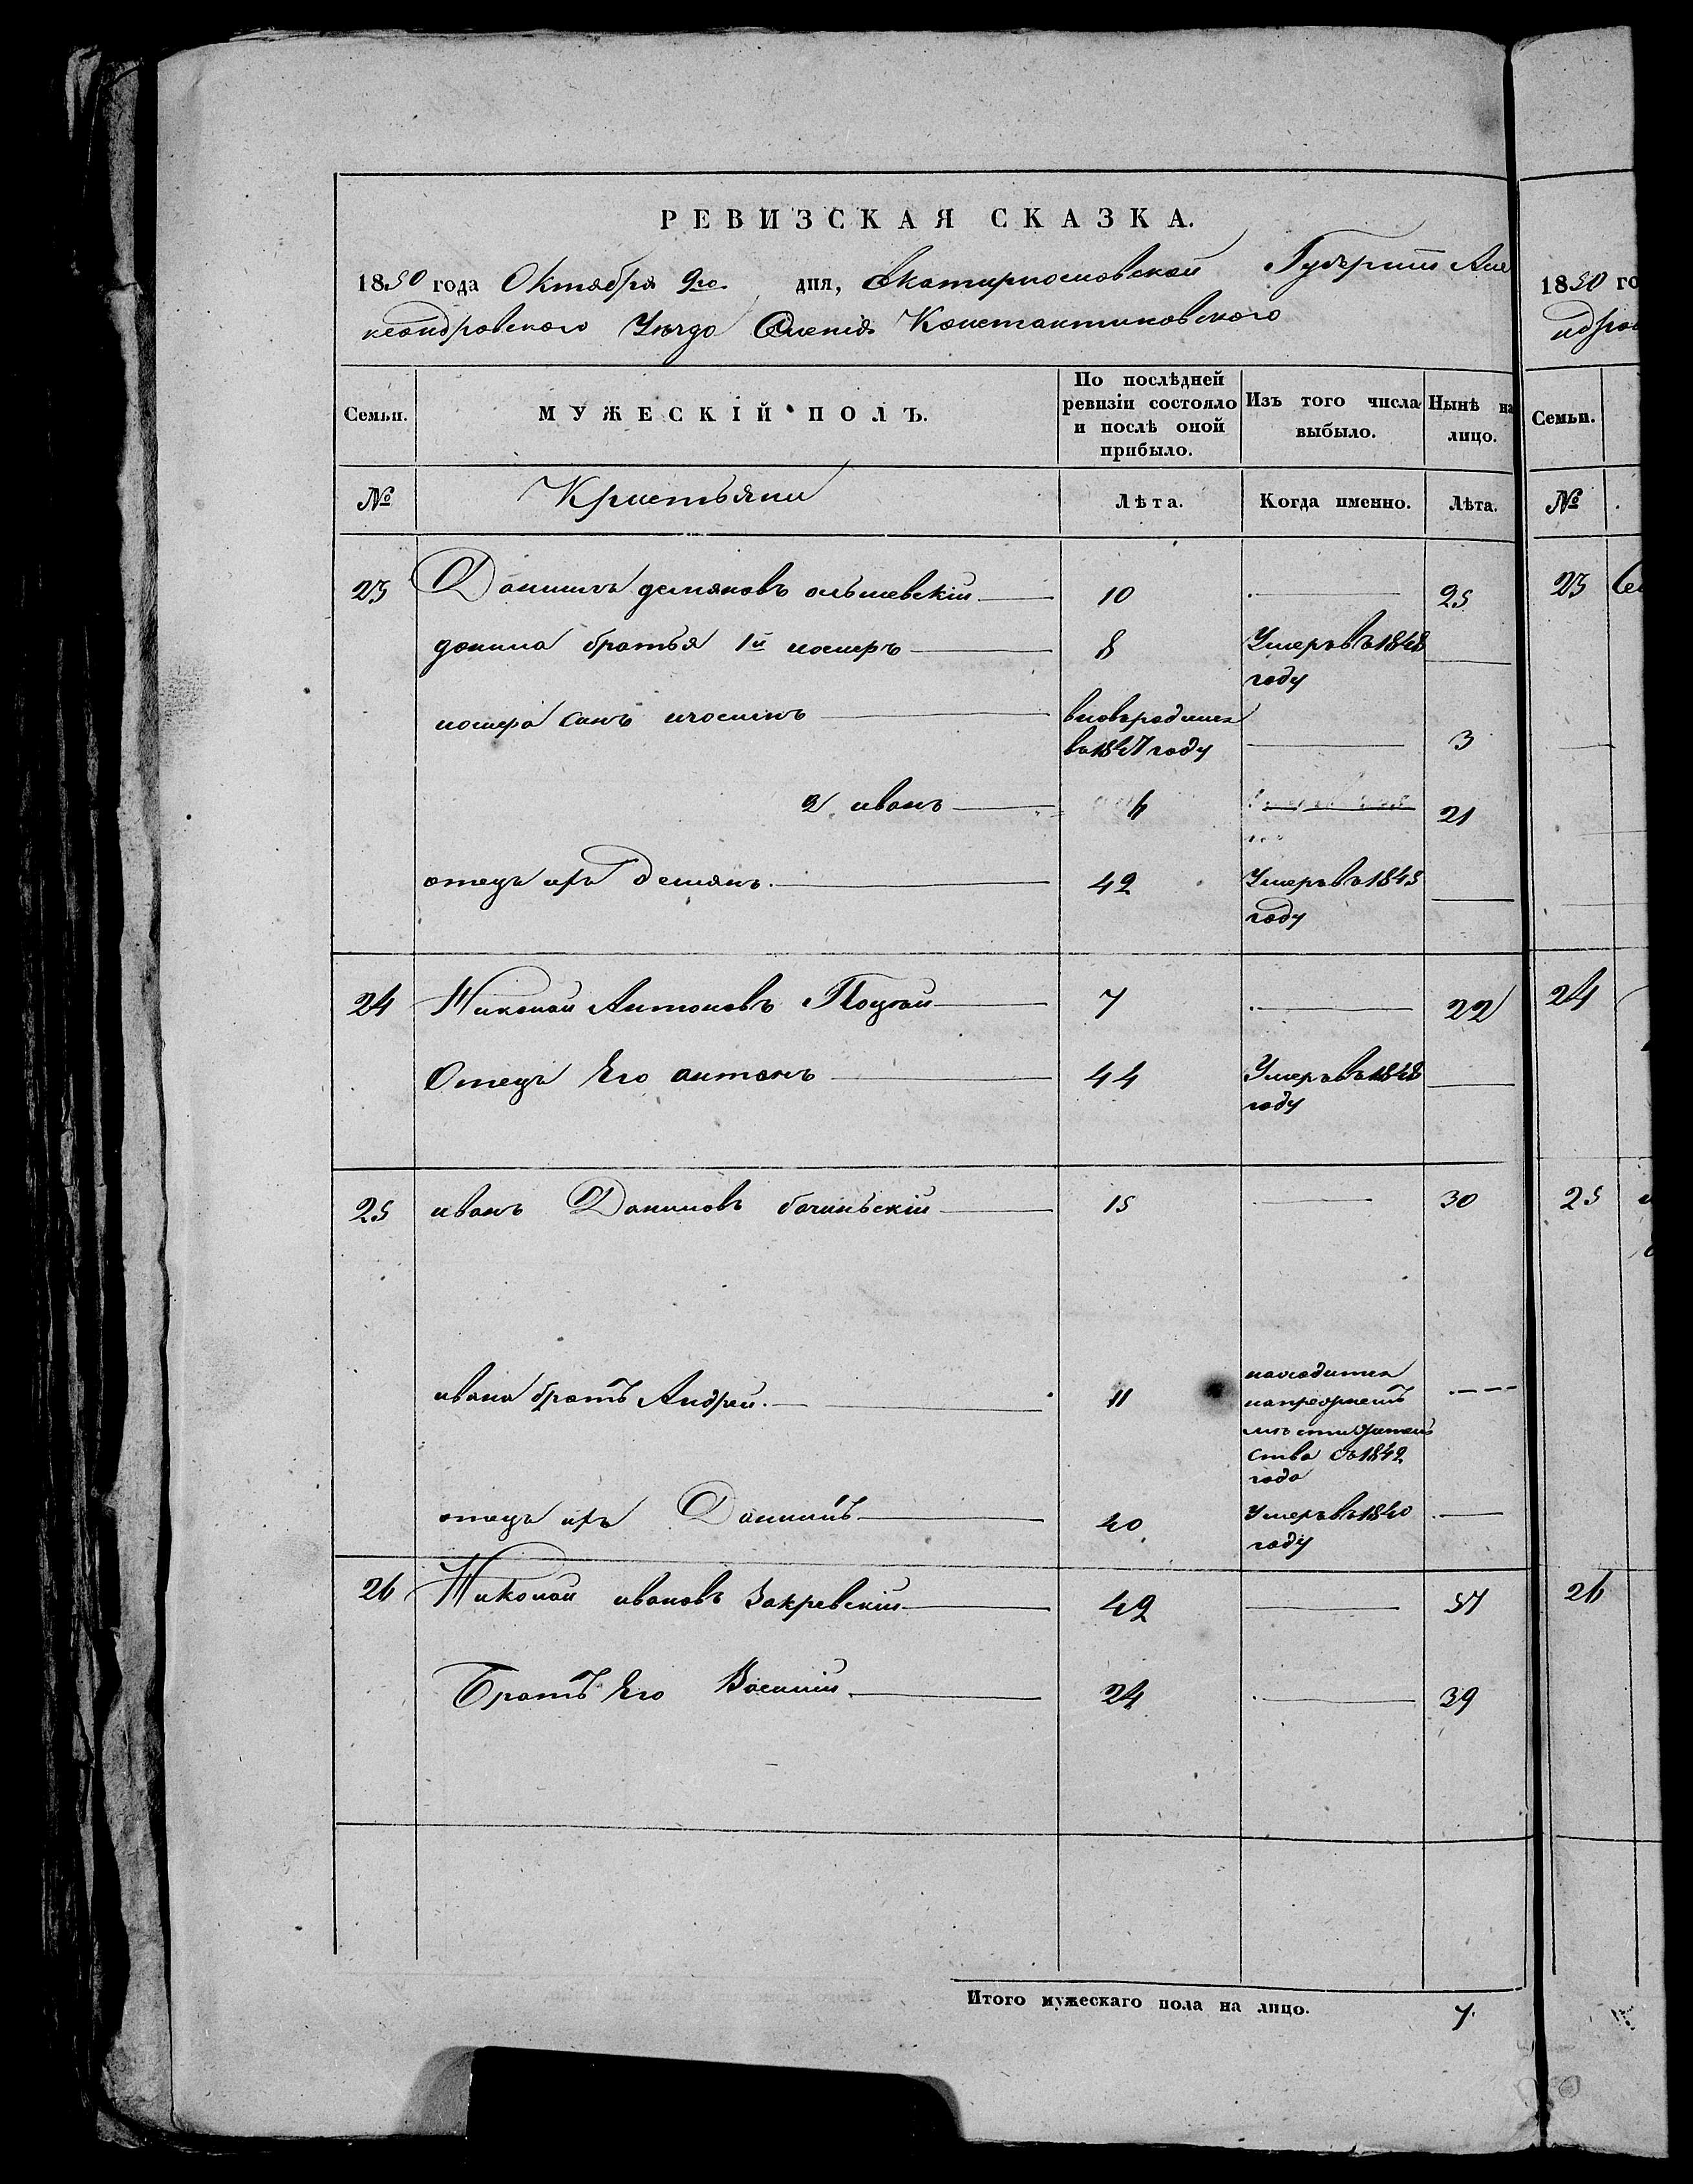 РЕВИЗСКАЯ СКАЗКА.
1850 года Октября 9го дня, Екатириословской Губернии Але
ксандровского Уезда Селенiя Константиновского
Семьи. МУЖЕСКIЙ ПОЛЪ. По послѣдней ревизiи состояло и послѣ оной прибыло. Изъ того числа выбыло. Нынѣ на лицо.
№ Кристьяни Лѣта. Когда именно. Лѣта.
23 Данило демяновъ олъшевскiи 10 25
данила братья 1й 8 Умеръ въ 1848
году
сынъ вновьродился
въ 1847 году 3
2 иванъ 21
отецъ ихъ Демянъ 42 Умеръ въ 1845
году
24 Николаи Антоновъ Поцкаи 7 22
Отецъ Его антонъ 44 Умеръ въ 1848
году
25 иванъ Даниловъ бачинъскiи 15 30
ивана братъ Андреи 11 находится
ства съ 1842
года
отецъ ихъ Данилъ 40 Умеръ въ 1840
году
26 Николаи ивановъ Закревскiи 42 57
Братъ Его Василiи 24 39
Итого мужескаго пола на лицо. 7
1850 го
Семьи.
№
23
24
25
26